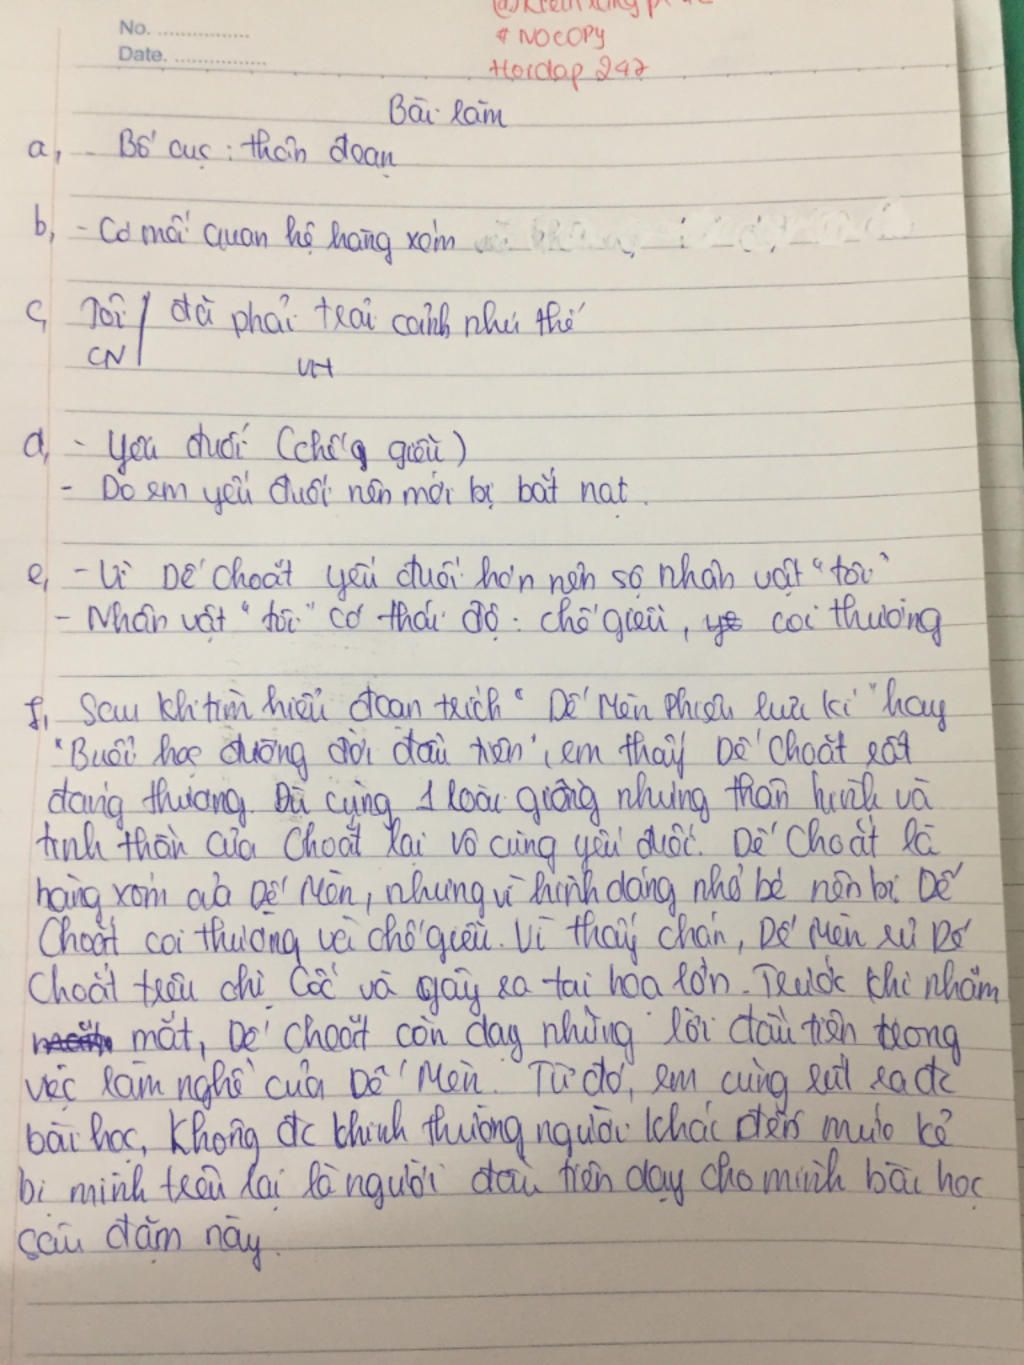 No.
Date.
# NOCOPY
Hoidap 247
Bài làm
a, - Bố cục : thân đoạn
b, - Có mối quan hệ hàng xóm
c, Tôi / đã phải trải cảnh như thế
CN VN
d, - Yếu đuối (chế giễu)
- Do em yếu đuối nên mới bị bắt nạt.
e, - Vì Dế Choắt yếu đuối hơn nên sợ nhân vật "tôi"
- Nhân vật "tôi" có thái độ : chế giễu, coi thường
f, Sau khi tìm hiểu đoạn trích "Dế Mèn phiêu lưu kí" hay
"Buổi học đường đời đầu tiên", em thấy Dế Choắt rất
đáng thương. Dù cùng 1 loài giống nhưng thân hình và
tinh thần của Choắt lại vô cùng yếu đuối. Dế Choắt là
hàng xóm của Dế Mèn, nhưng vì hình dáng nhỏ bé nên bị Dế
Choắt coi thường và chế giễu. Vì thấy chán, Dế Mèn rủ Dế
Choắt trêu chị Cốc và gây ra tai họa lớn. Trước khi nhắm
mắt, Dế Choắt còn dạy những lời đầu tiên trong
việc làm nghề của Dế Mèn. Từ đó, em cũng rút ra đc
bài học, không đc khinh thường người khác đến mức kẻ
bị mình trêu lại là người đầu tiên dạy cho mình bài học
sâu đậm này.